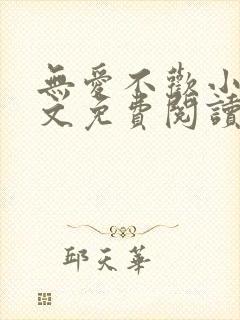 無愛不歡小
文免費閱讀
邱天華